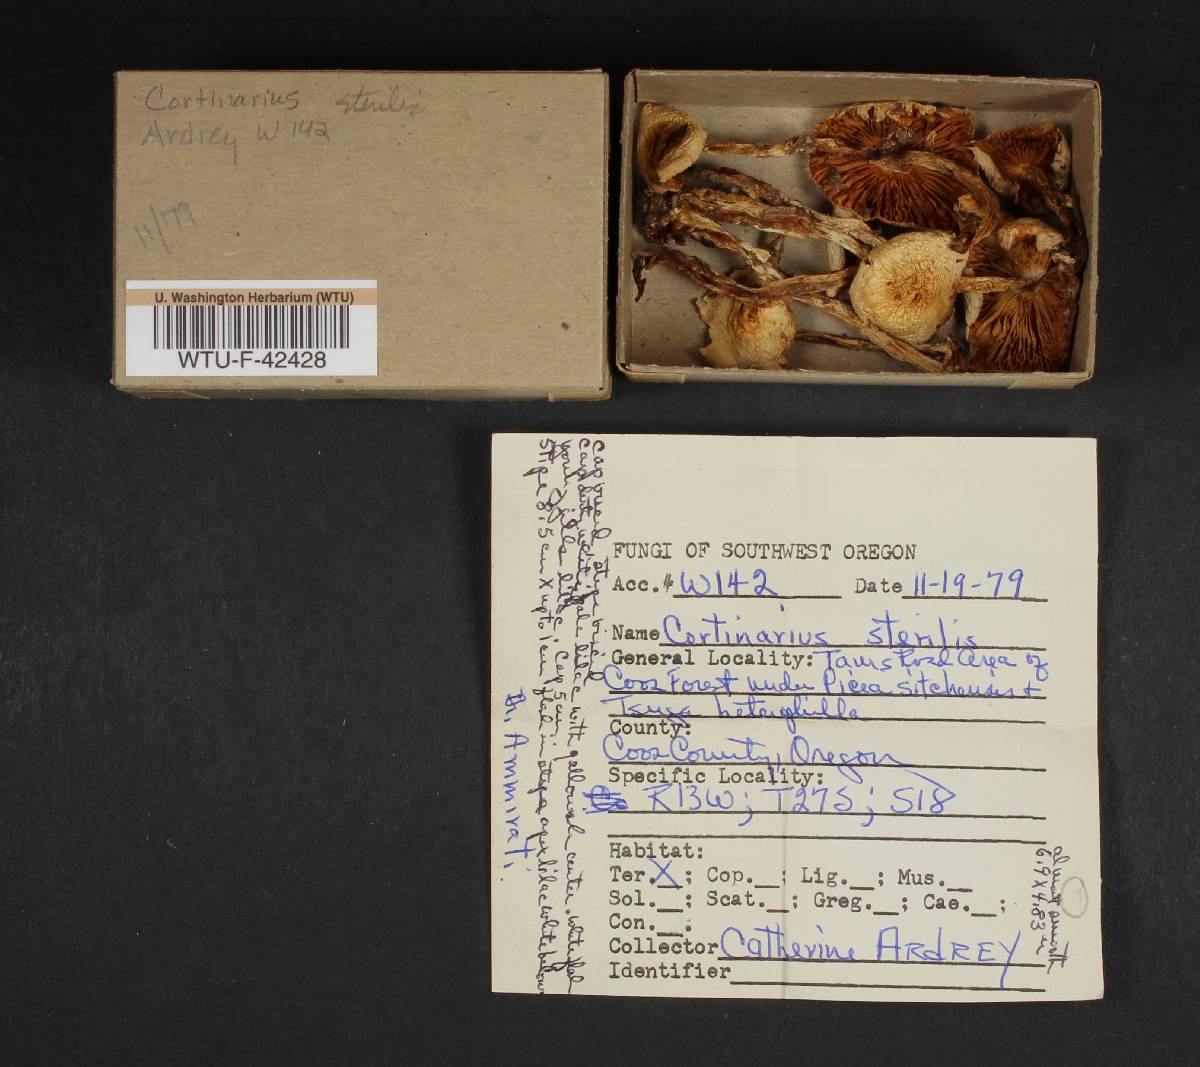 Cortinarius sterilis
Ardrey W 142
11/79
U. Washington Herbarium (WTU)
WTU-F-42428
FUNGI OF SOUTHWEST OREGON
Acc.# W142 Date 11-19-79
Name Cortinarius sterilis
General Locality: Tams Road Area of
Coos Forest under Picea sitchensis +
Tsuga heterophylla
County:
Coos County, Oregon
Specific Locality:
R13W; T27S; S18
Habitat:
Ter. X; Cop.__; Lig.__; Mus.__
Sol.__; Scat.__; Greg.__; Cae.__;
Con.__;
Collector Catherine ARDREY
Identifier
cap viscid, stipe viscid
cap dirty white pale lilac with yellowish center. white
young gills lilac. Cap 5cm;
Stipe 8.5cm X up to 1cm stipe apex lilac white below
Dr. Ammirati.
almost smooth
6.9 X 4.83